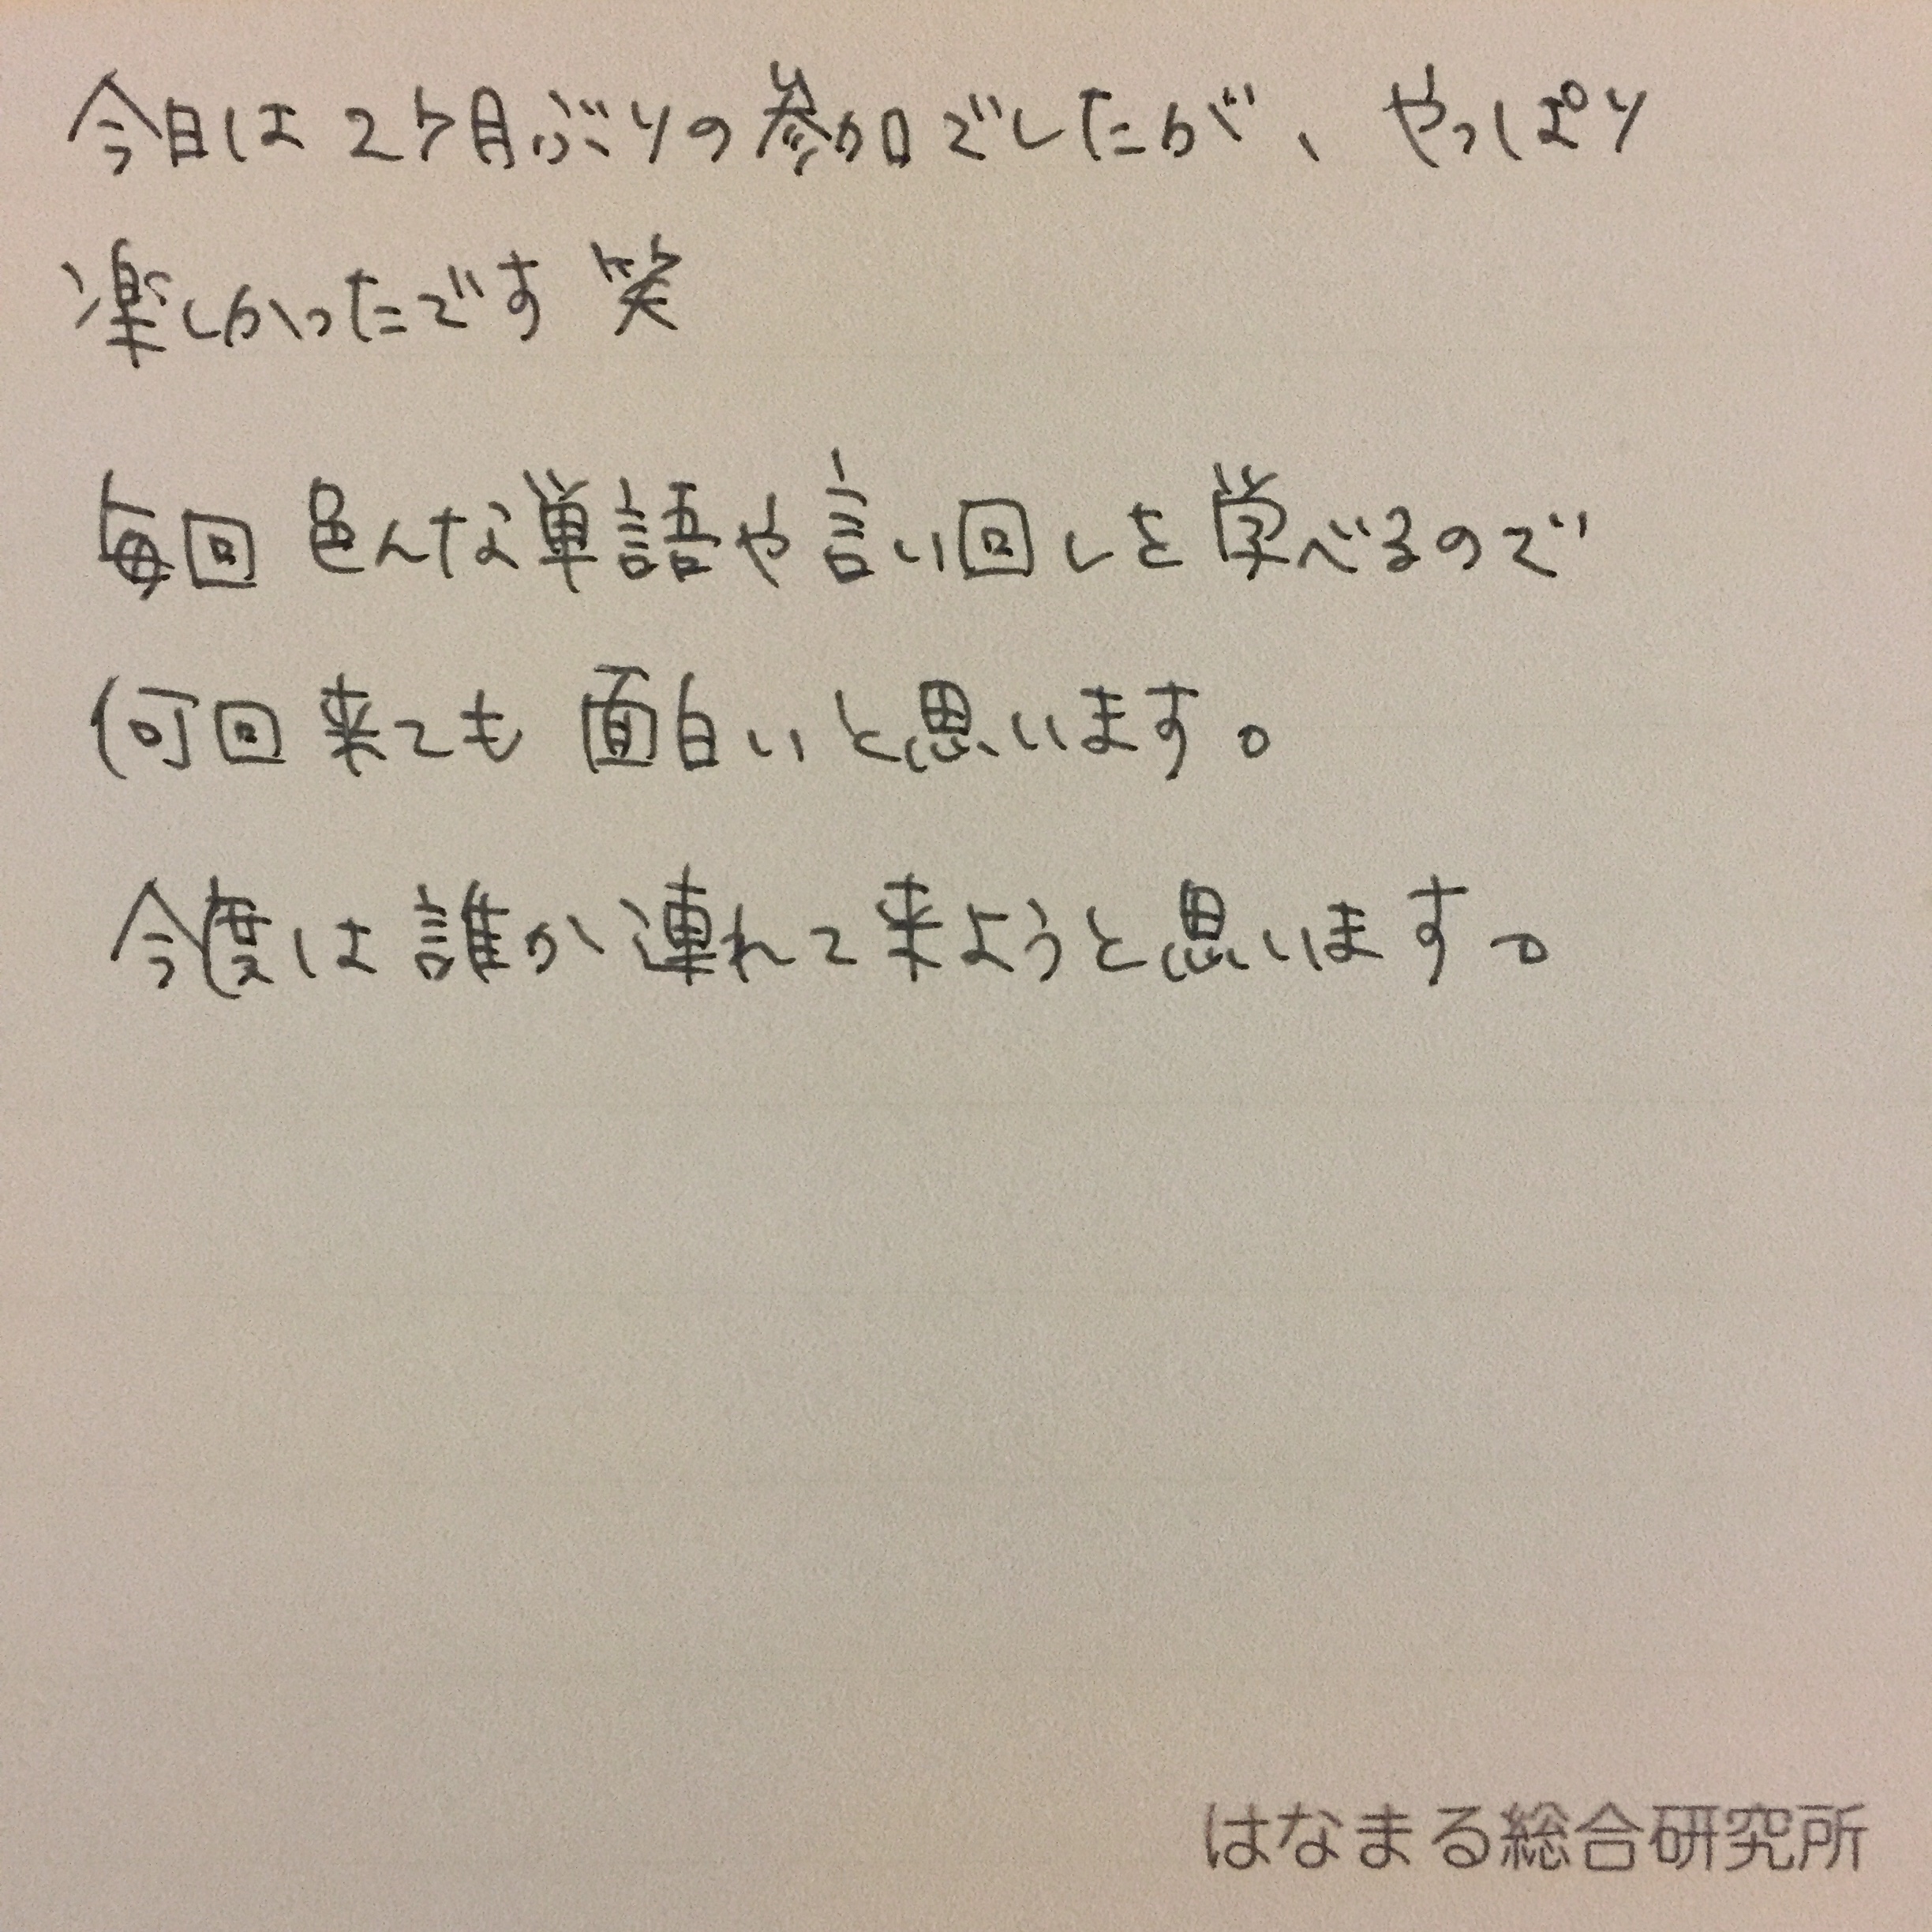 今日は2ヶ月ぶりの参加でしたが、やっぱり
楽しかったです 笑
毎回 色んな単語や言い回しを学べるので
何回来ても 面白いと思います。
今度は誰か連れて来ようと思います。
はなまる総合研究所